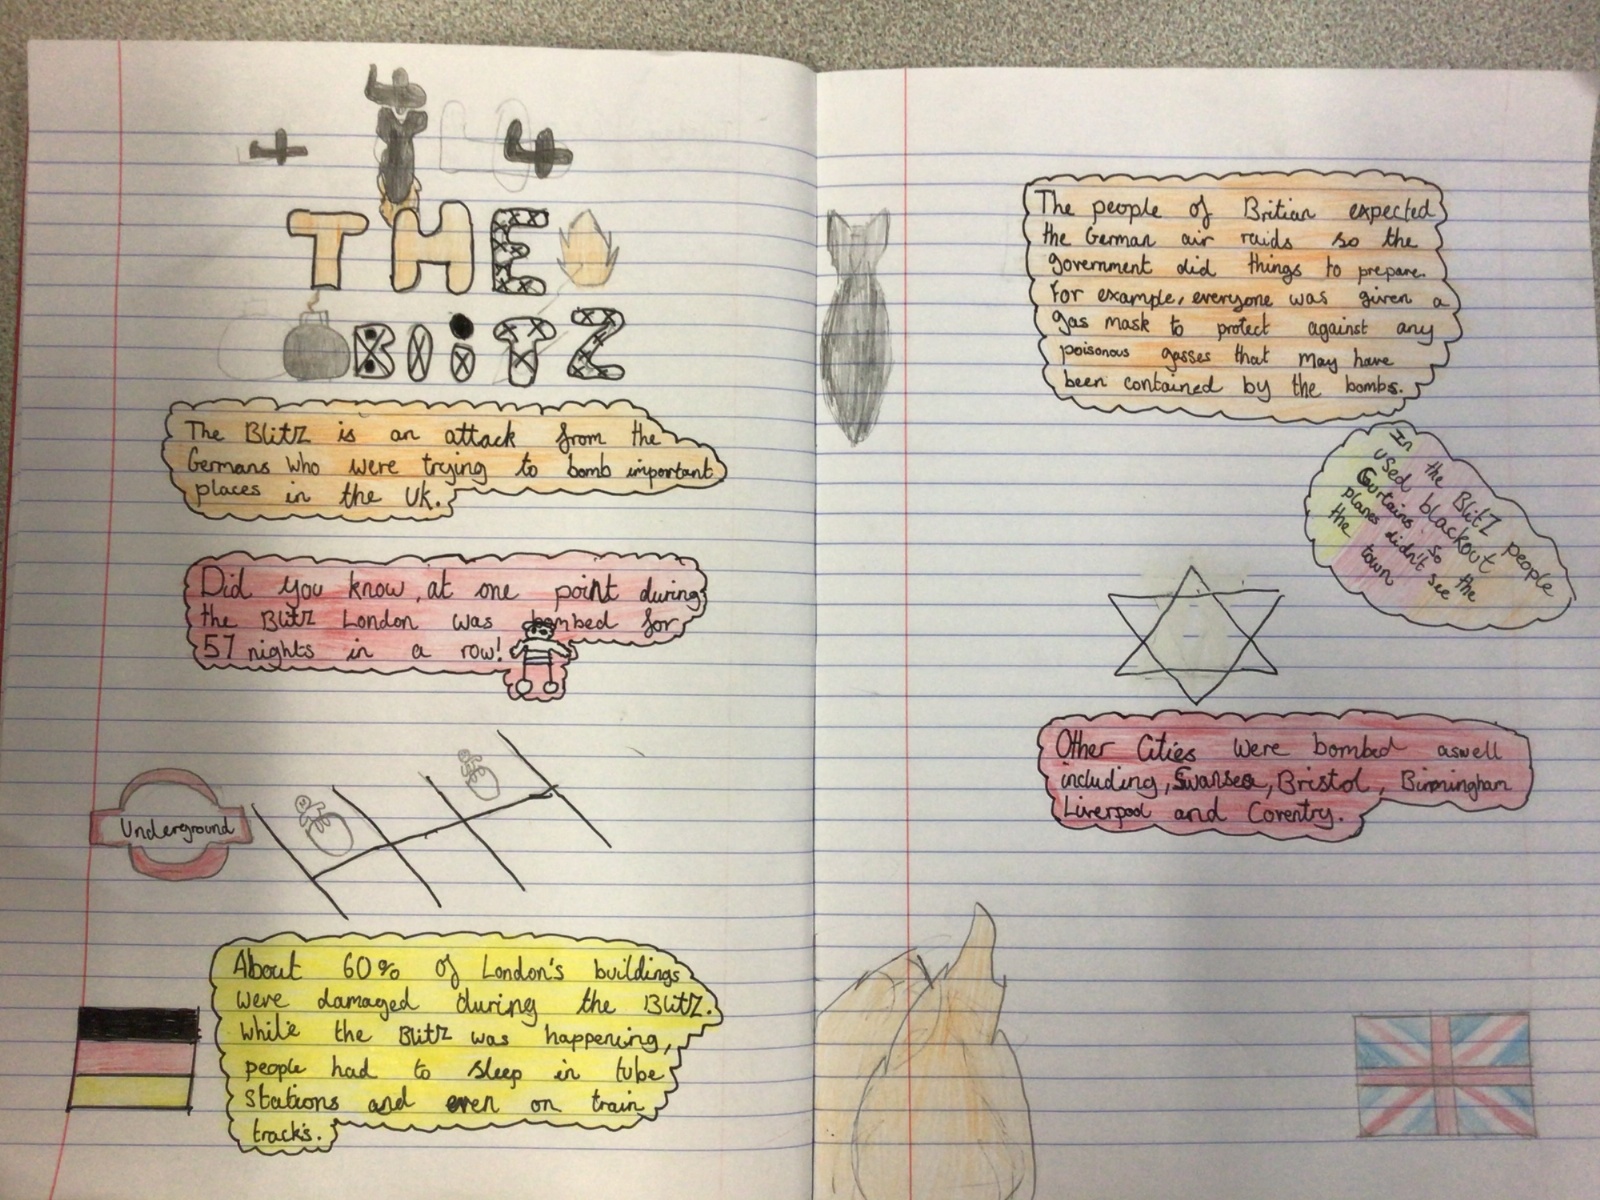 THE
BLITZ
The Blitz is an attack from the
Germans who were trying to bomb important
places in the UK.
Did you know, at one point during
the Blitz London was bombed for
57 nights in a row!
Underground
About 60% of London's buildings
were damaged during the Blitz.
While the Blitz was happening,
people had to sleep in tube
stations and even on train
tracks.
The people of Britian expected
the German air raids so the
government did things to prepare.
For example, everyone was given a
gas mask to protect against any
poisonous gasses that may have
been contained by the bombs.
In the Blitz people
used blackout
Curtains so the
planes didn't see
the town
Other Cities were bombed aswell
including, Swansea, Bristol, Birmingham
Liverpool and Coventry.